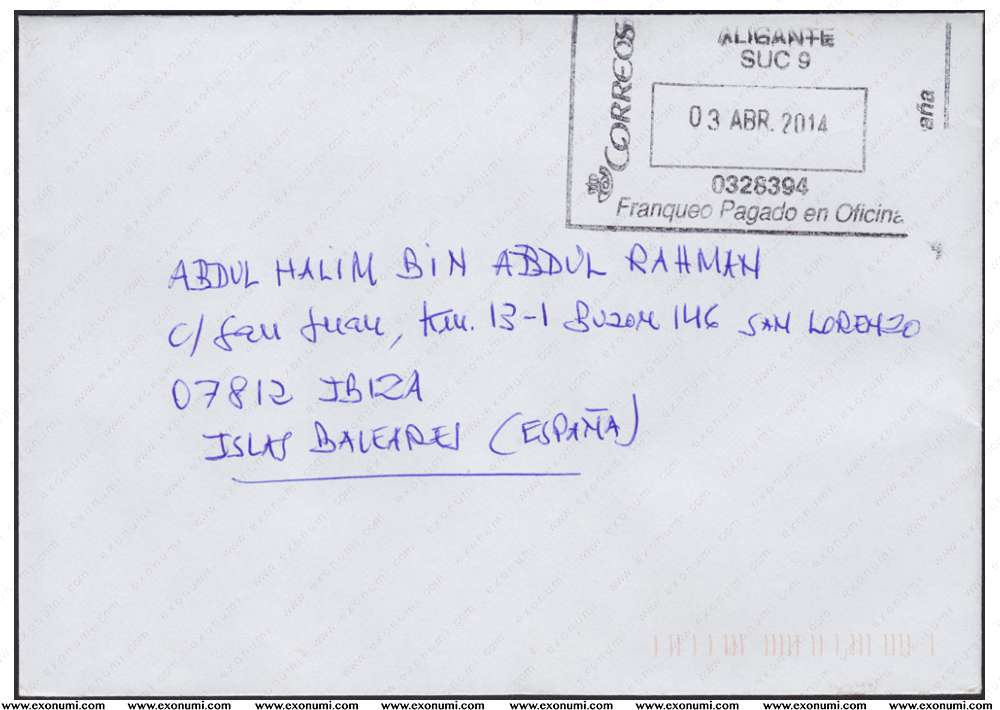 ALICANTE
SUC 9
CORREOS
03 ABR. 2014
aña
0328394
Franqueo Pagado en Oficina
ABDUL HALIM BIN ABDUL RAHMAN
C/ San Juan, Km. 13-1 Buzon 146 SAN LORENZO
07812 IBIZA
ISLAS BALEARES (ESPAÑA)
www.exonumi.com www.exonumi.com www.exonumi.com www.exonumi.com www.exonumi.com www.exonumi.com www.exonumi.com www.exonumi.com